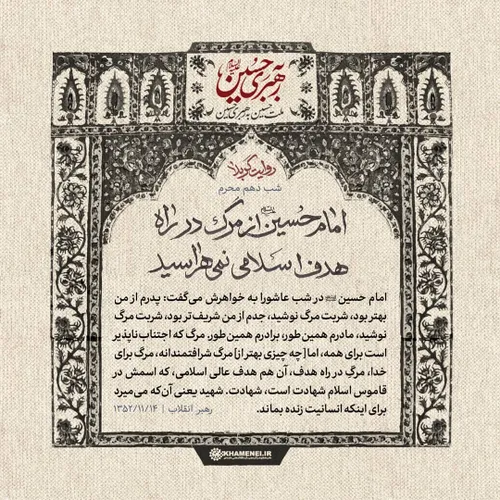 به رهبری حسین
ملت حسین به رهبری حسین
روایت کربلا
شب دهم محرم
امام حسین از مرگ در راه
هدف اسلامی نمی‌هراسید
امام حسین در شب عاشورا به خواهرش می‌گفت: پدرم از من
بهتر بود، شربت مرگ نوشید، جدم از من شریف‌تر بود، شربت مرگ
نوشید، مادرم همین طور، برادرم همین طور. مرگ که اجتناب‌ناپذیر
است برای همه، اما [چه چیزی بهتر از] مرگ شرافتمندانه، مرگ برای
خدا، مرگ در راه هدف، آن هم هدف عالی اسلامی، که اسمش در
قاموس اسلام شهادت است، شهادت. شهید یعنی آن‌که می‌میرد
برای اینکه انسانیت زنده بماند. رهبر انقلاب | ۱۳۵۲/۱۱/۱۴
KHAMENEI.IR